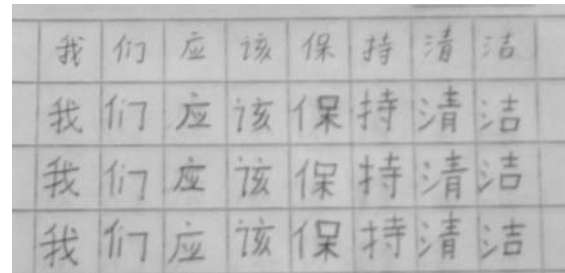 我们应该保持清洁
我们应该保持清洁
我们应该保持清洁
我们应该保持清洁